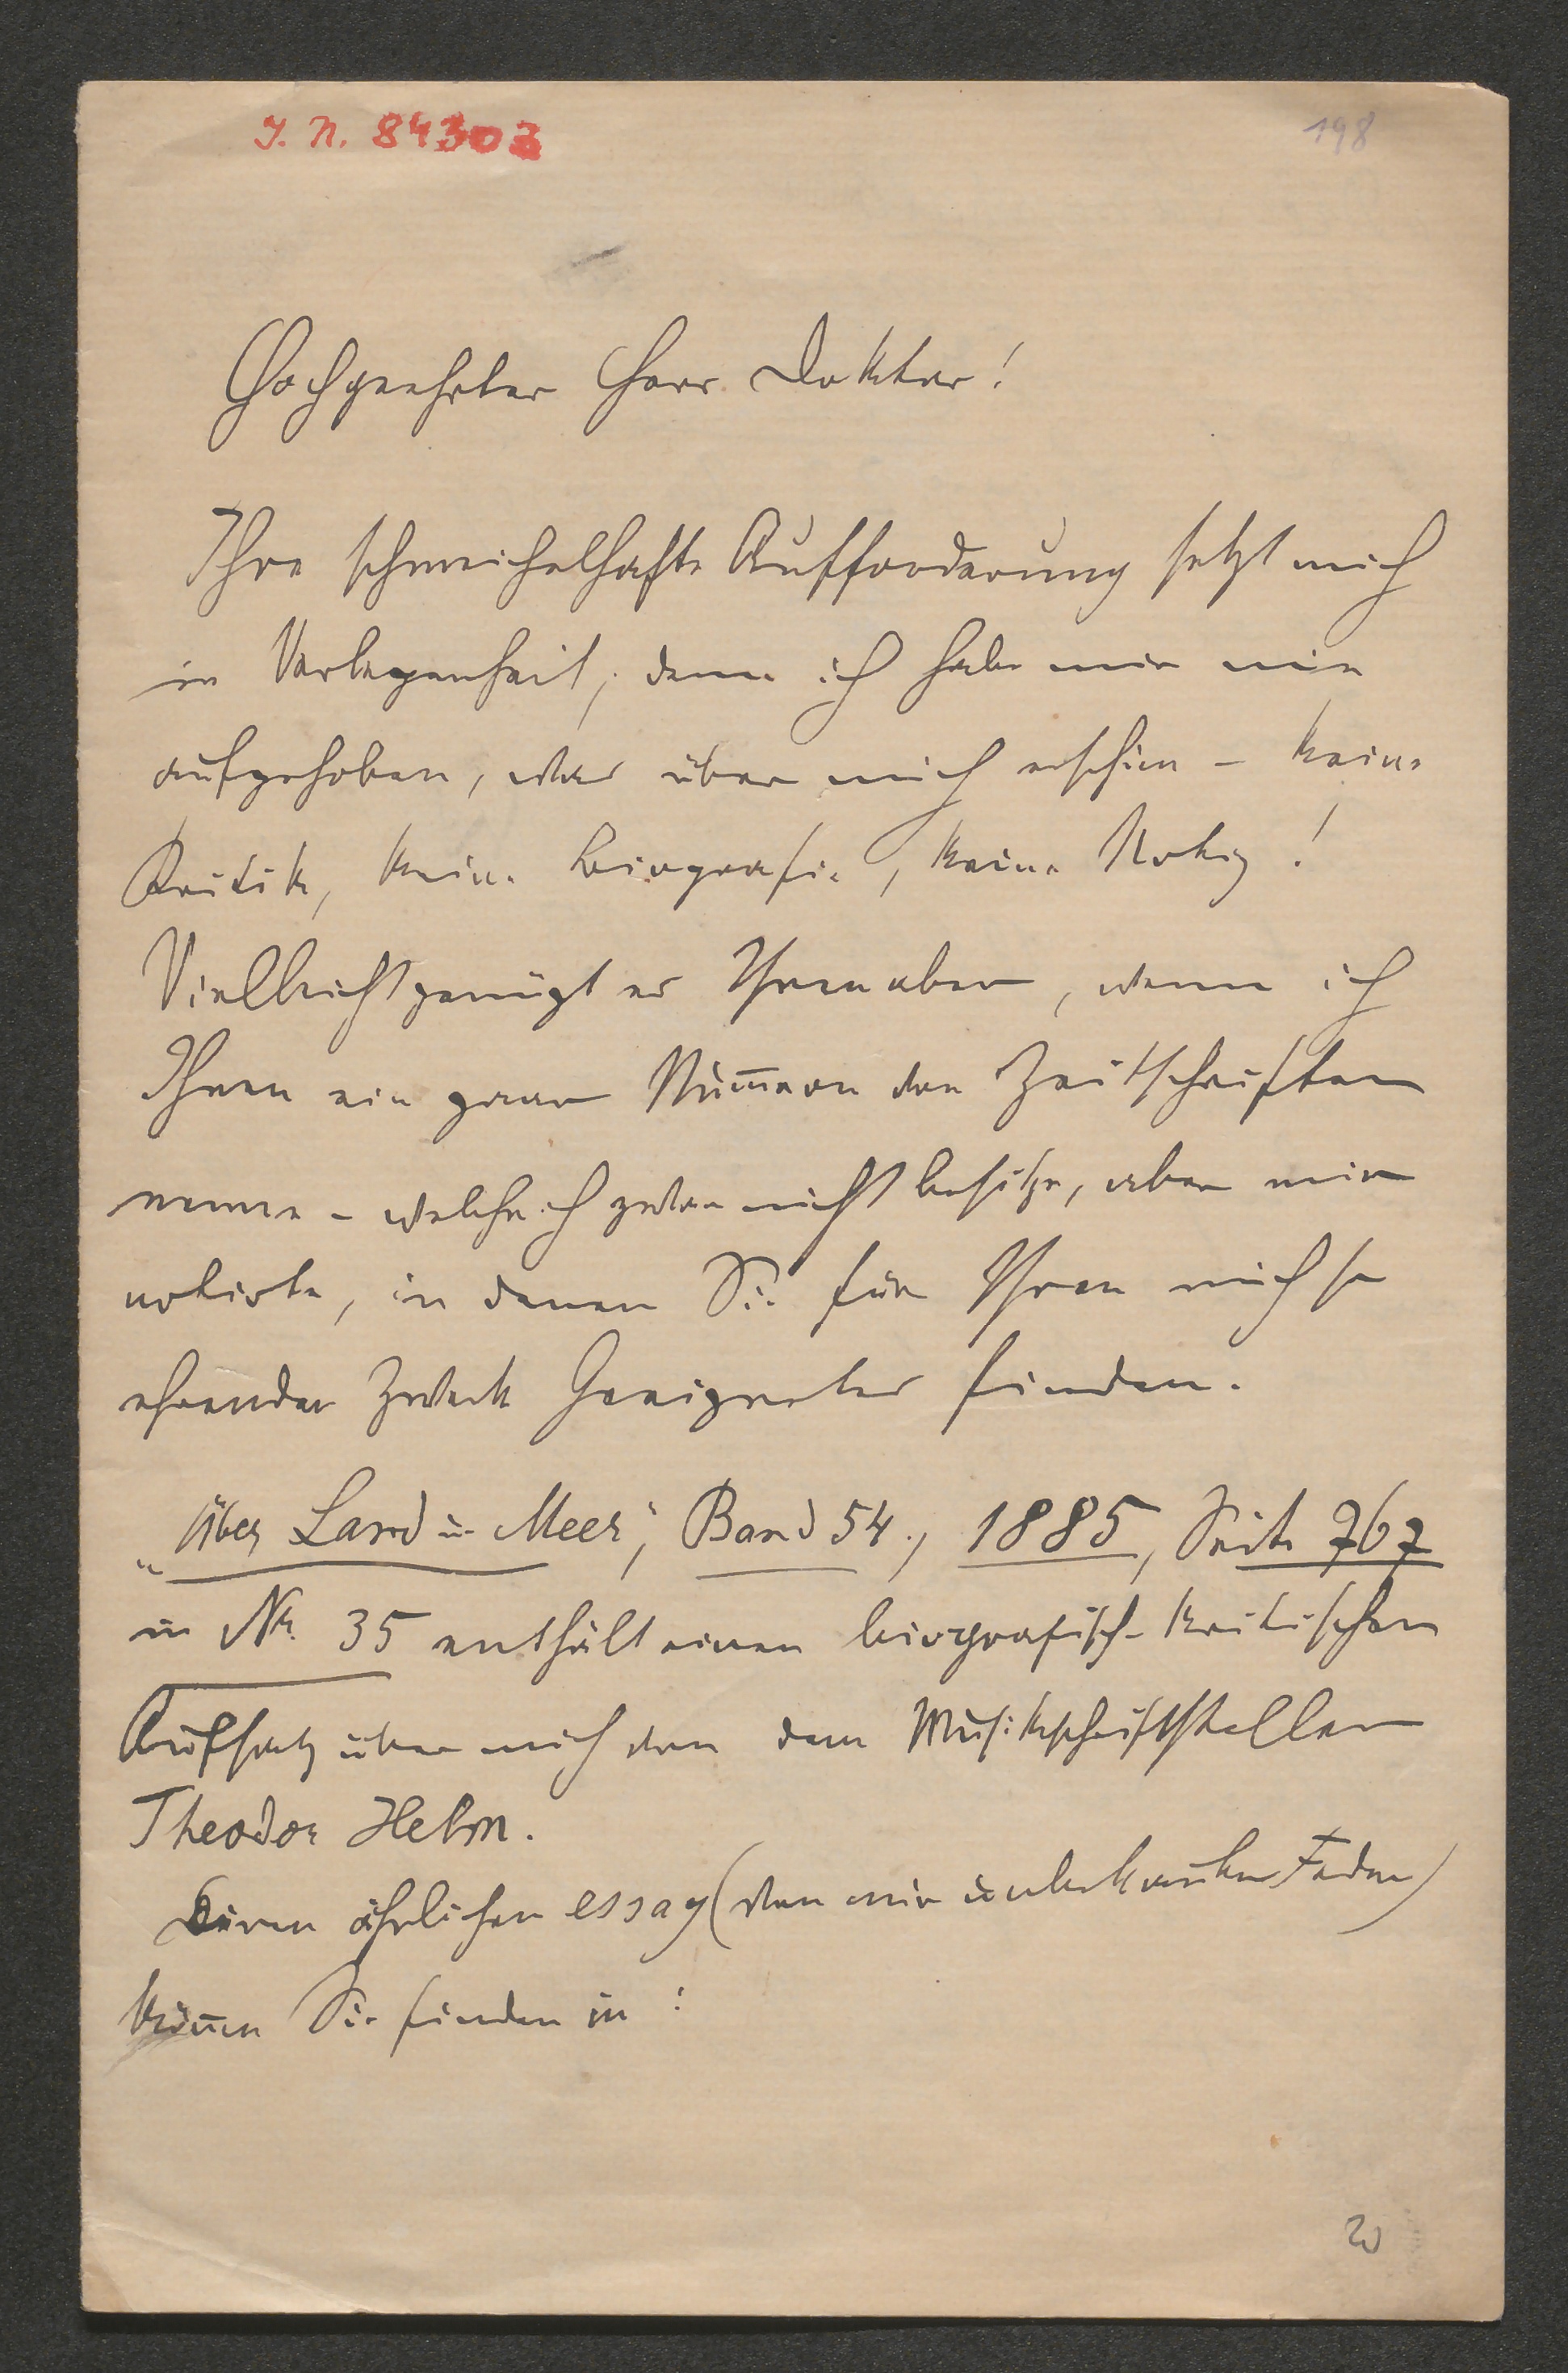 J. N. 84303
198
Hochgeehrter Herr Doktor!
Ihre schmeichelhafte Aufforderung setzt mich
in Verlegenheit, denn ich habe mir nie
aufgehoben, was über mich erschien – keine
Kritik, keine biografie, keine Notiz!
Vielleicht genügt es Ihnen aber, wenn ich
Ihnen ein paar Num̅ern von Zeitschriften
nenne – welche ich zwar nicht besitze, aber mir
notirte, in denen Sie für Ihren mich so
ehrenden Zweck Geeignetes finden.
„Über Land u. Meer“, Band 54., 1885, Seite 767
in Nr. 35 enthält einen biografisch-kritischen
Aufsatz über mich von dem Musikschriftsteller
Theodor Helm.
Einen ähnlichen essay (von mir unbekannter Feder)
kön̅en Sie finden in: